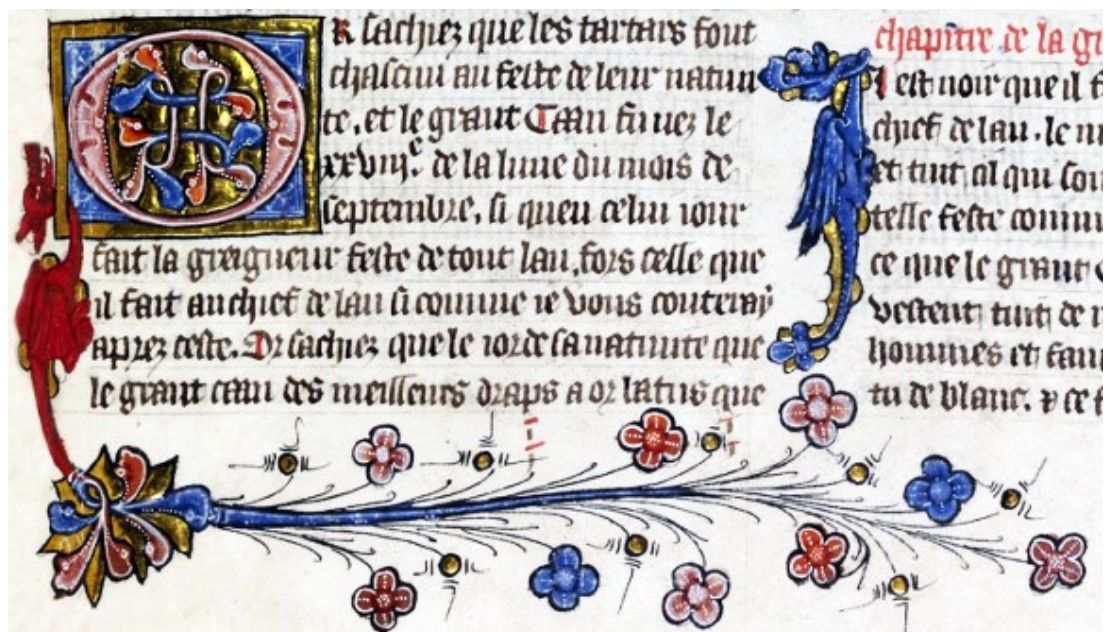 OR sachiez que les tartars font
chascun au feste de leur natiui
te. et le grant Caan fu nez le
xxviij.e de la lune du mois de
septembre. si quen celui iour
fait la greigneur feste de tout lan. fors celle que
il fait au chief de lan si comme ie vous conteray
aprez ceste. Or sachiez que le ior de sa natiuite que
le grant caan des meilleurs draps a or batus que
chapitre de la
I est uoir que il
chief de lan. le
et tuit cil qui
telle feste
ce que le grant
vestent tuit de
hommes et
tu de blanc.